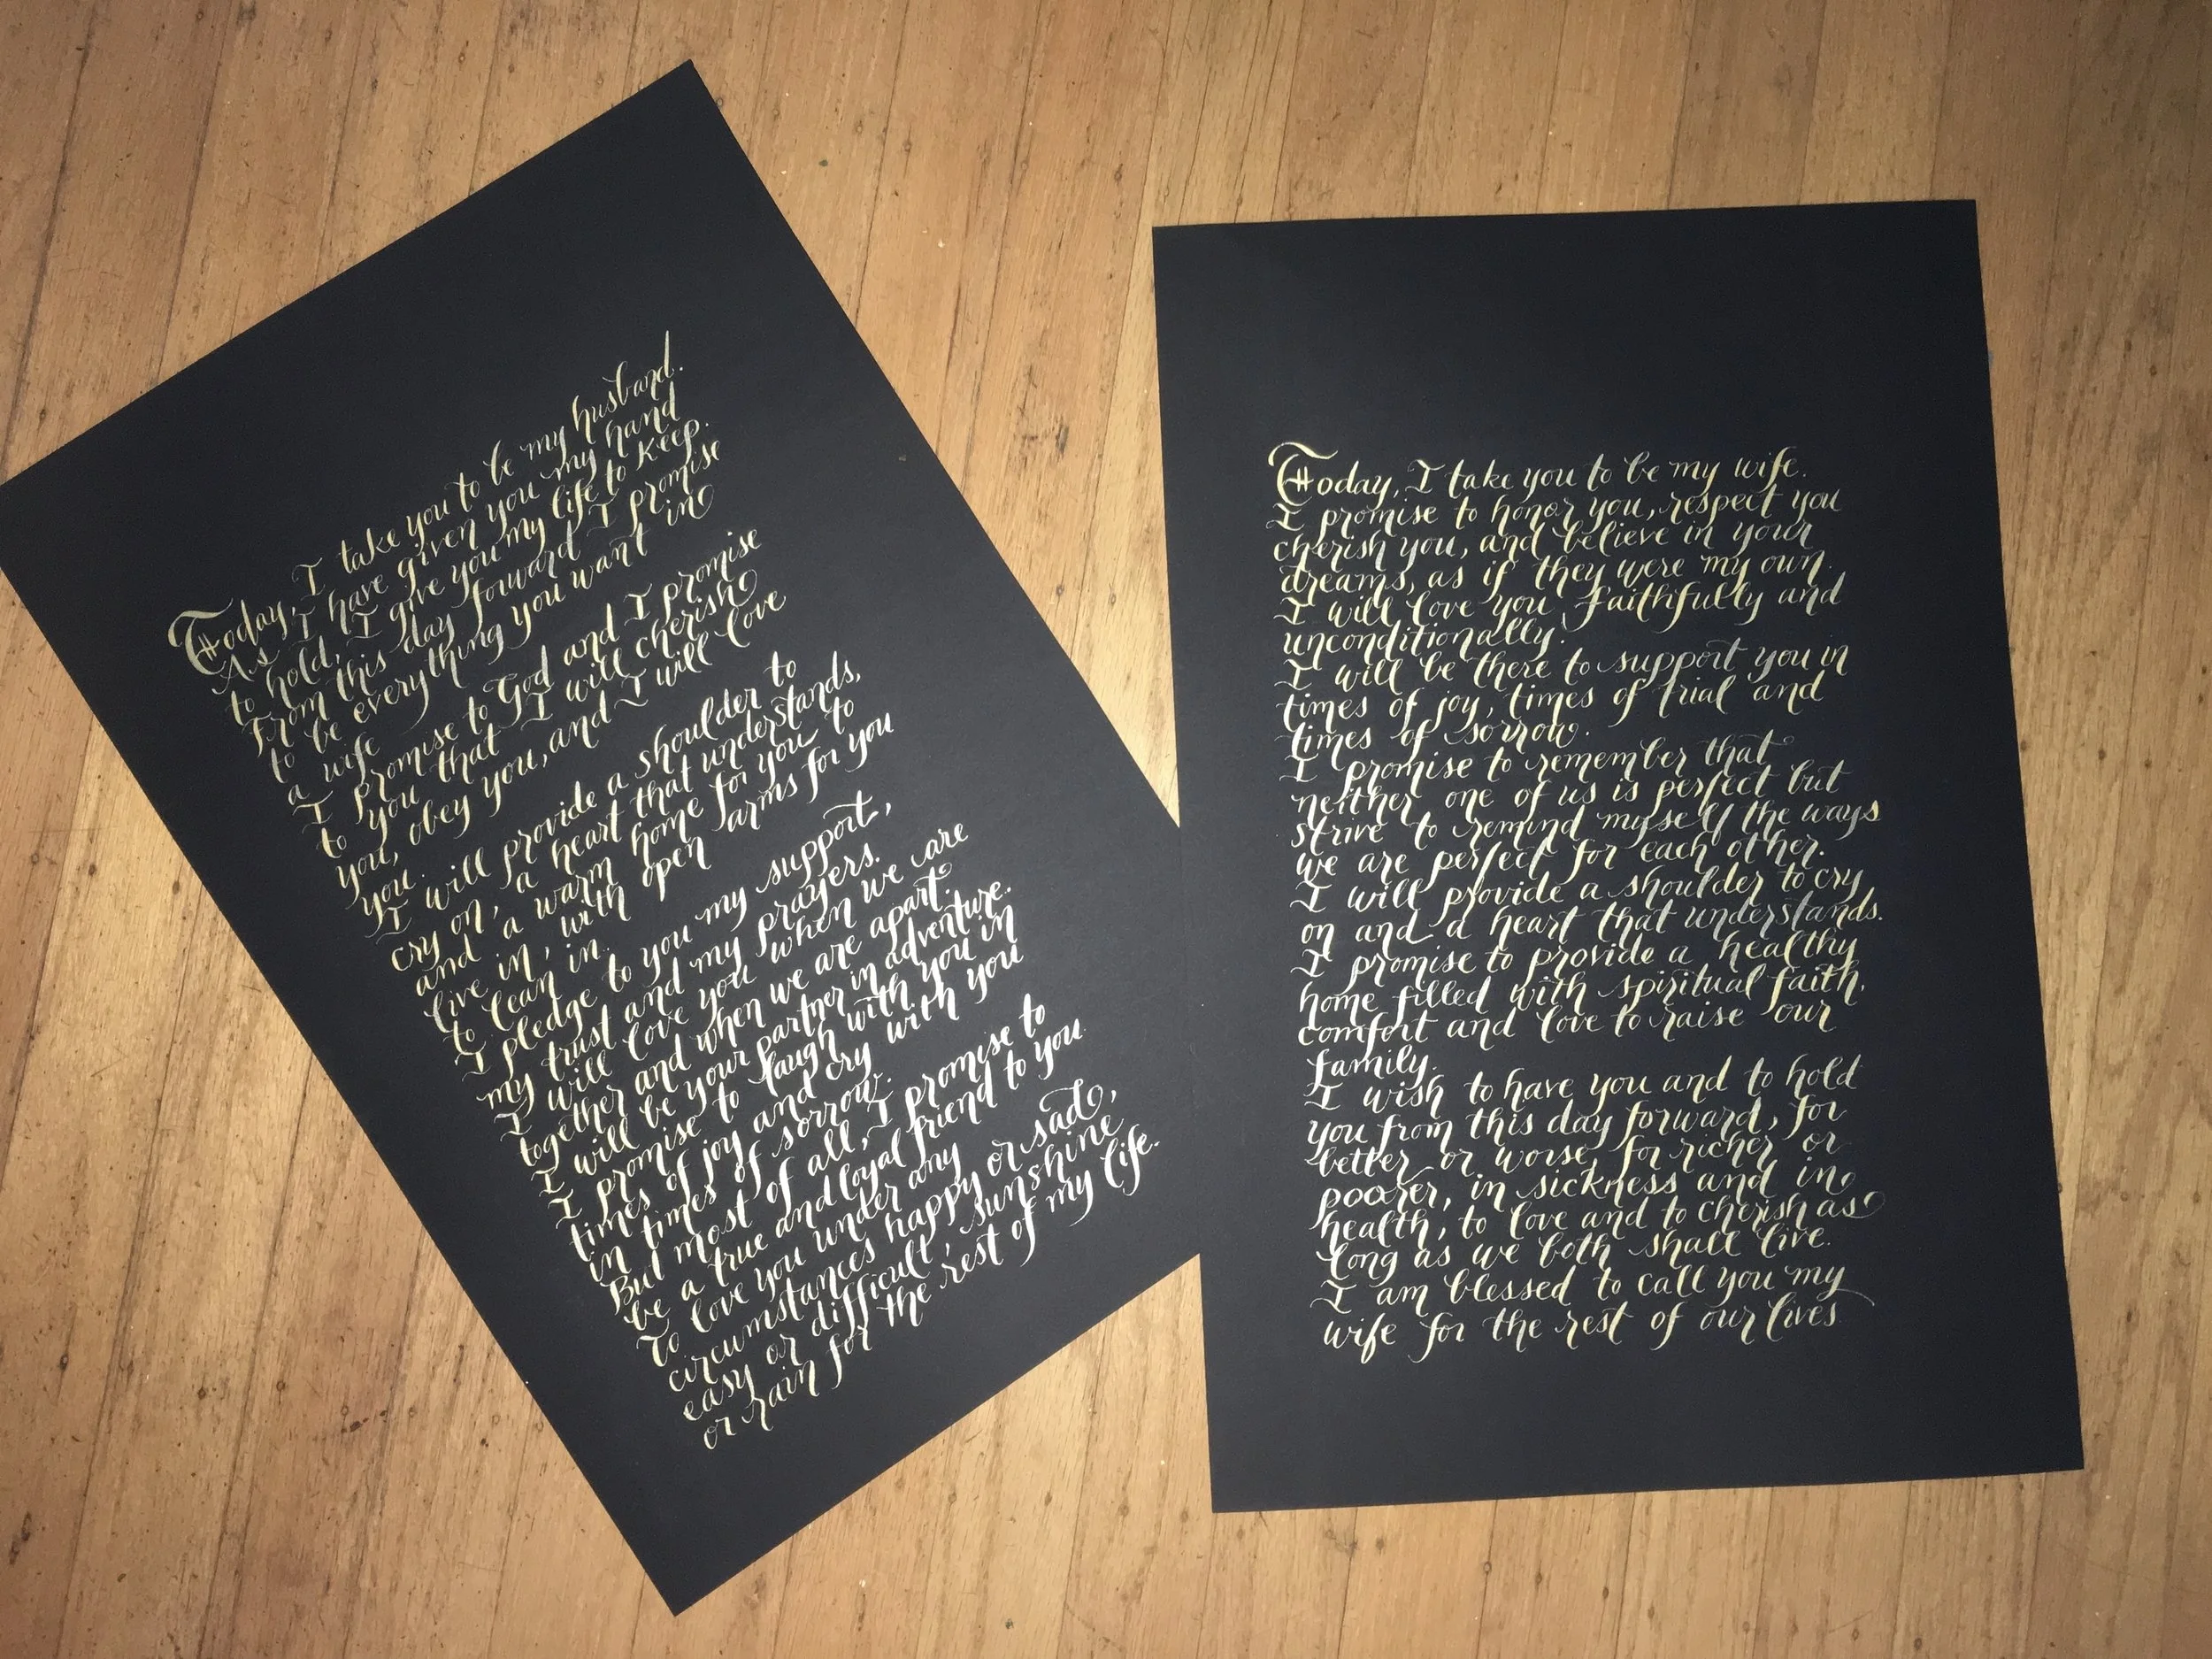 Today, I take you to be my husband.
As I have given you my hand
to hold, I give you my life to keep.
From this day forward I promise
to be everything you want in
a wife
I promise to God and I promise
to you that I will cherish
you, obey you, and I will love
you.
I will provide a shoulder to
cry on, a heart that understands,
and a warm home for you to
live in, with open arms for you
to lean in.
I pledge to you my support,
my trust and my prayers.
I will love you when we are
together and when we are apart.
I will be your partner in adventure.
I promise to laugh with you in
times of joy and cry with you
in times of sorrow.
But most of all, I promise to
be a true and loyal friend to you
To love you under any
circumstances happy or sad,
easy or difficult, sunshine
or rain for the rest of my life.
Today, I take you to be my wife.
I promise to honor you, respect you
cherish you, and believe in your
dreams, as if they were my own.
I will love you faithfully and
unconditionally.
I will be there to support you in
times of joy, times of trial and
times of sorrow.
I promise to remember that
neither one of us is perfect but
strive to remind myself the ways
we are perfect for each other.
I will provide a shoulder to cry
on and a heart that understands.
I promise to provide a healthy
home filled with spiritual faith,
comfort and love to raise our
family.
I wish to have you and to hold
you from this day forward, for
better or worse, for richer or
poorer, in sickness and in
health, to love and to cherish as
long as we both shall live.
I am blessed to call you my
wife for the rest of our lives